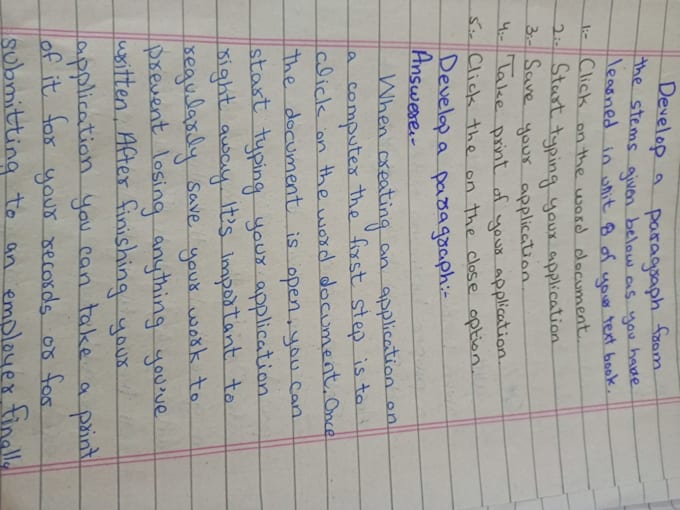 Develop a paragraph from
the stems given below as you have
learned in unit 8 of your text book.
1:- Click on the word document.
2:- Start typing your application
3:- Save your application.
4:- Take print of your application.
5:- Click the on the close option.
Develop a paragraph:-
Answere:-
When creating an application on
a computer the first step is to
click on the word document. Once
the document is open, you can
start typing your application
right away It's important to
regularly save your work to
prevent losing anything you've
written. After finishing your
application you can take a print
of it for your records or for
submitting to an employer. finally